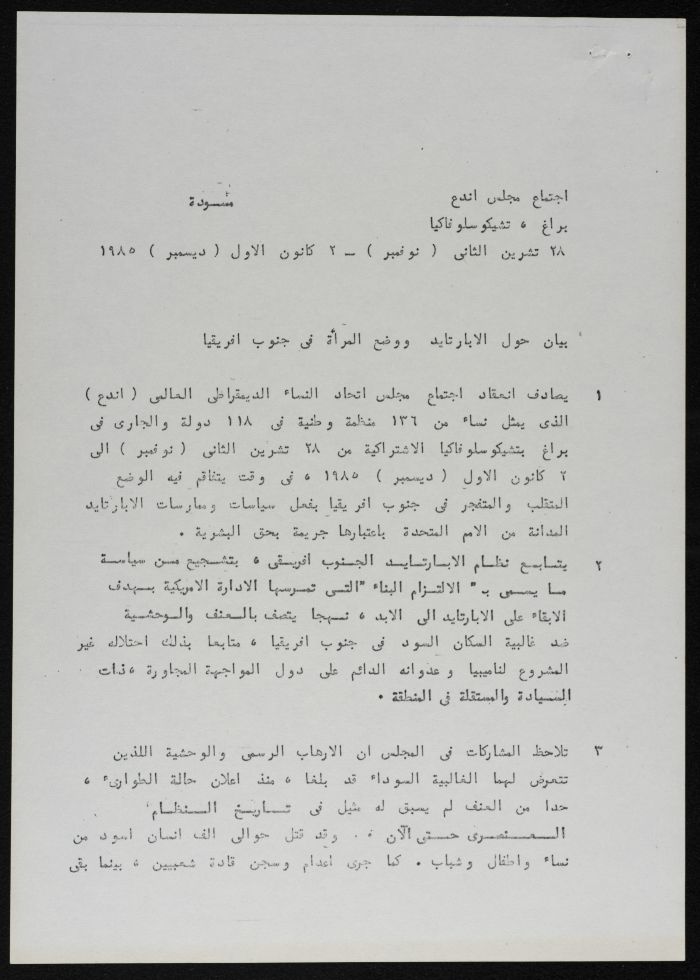 اجتماع مجلس اندع
مسودة
براغ ، تشيكوسلوفاكيا
٢٨ تشرين الثانى ( نوفمبر ) ــ ٢ كانون الاول ( ديسمبر ) ١٩٨٥
بيان حول الابارتايد ووضع المرأة فى جنوب افريقيا
١ يصادف انعقاد اجتماع مجلس اتحاد النساء الديمقراطى العالمى ( اندع )
الذى يمثل نساء من ١٣٦ منظمة وطنية فى ١١٨ دولة والجارى فى
براغ بتشيكوسلوفاكيا الاشتراكية من ٢٨ تشرين الثانى ( نوفمبر ) الى
٢ كانون الاول ( ديسمبر ) ١٩٨٥ ، فى وقت يتفاقم فيه الوضع
المتقلب والمتفجر فى جنوب افريقيا بفعل سياسات وممارسات الابارتايد
المدانة من الامم المتحدة باعتبارها جريمة بحق البشرية .
٢ يتابع نظام الابارتايد الجنوب افريقى ، بتشجيع من سياسة
ما يسمى بـ " الالتزام البناء "التى تمرسها الادارة الامريكية بهدف
الابقاء على الابارتايد الى الابد ، نهجا يتصف بالعنف والوحشية
ضد غالبية السكان السود فى جنوب افريقيا ، متابعا بذلك احتلاله غير
المشروع لناميبيا وعدوانه الدائم على دول المواجهة المجاورة ، ذات
السيادة والمستقلة فى المنطقة .
٣ تلاحظ المشاركات فى المجلس ان الارهاب الرسمى والوحشية اللذين
تتعرض لهما الغالبية السوداء قد بلغا ، منذ اعلان حالة الطوارىء ،
حدا من العنف لم يسبق له مثيل فى تاريخ النظام
العنصرى حتى الآن . وقد قتل حوالى الف انسان اسود من
نساء واطفال وشباب . كما جرى اعدام وسجن قادة شعبيين ، بينما بقى